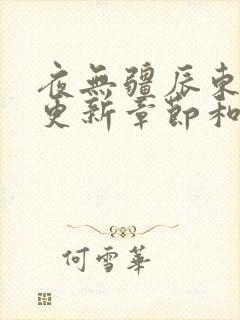 夜無疆辰東
更新章節和
何雪華